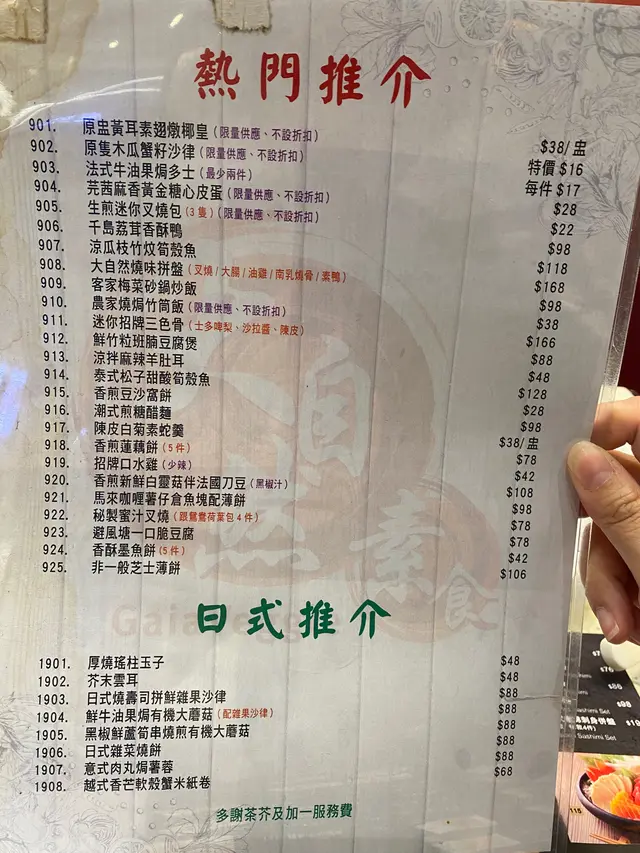 熱門推介
901. 原盅黃耳素翅燉椰皇(限量供應、不設折扣) $38/盅
902. 原隻木瓜蟹籽沙律(限量供應、不設折扣) 特價 $16
903. 法式牛油果焗多士(最少兩件) 每件 $17
904. 芫茜麻香黃金糖心皮蛋(限量供應、不設折扣) $28
905. 生煎迷你叉燒包(3隻)(限量供應、不設折扣) $22
906. 千島荔茸香酥鴨 $98
907. 涼瓜枝竹炆筍殼魚 $118
908. 大自然燒味拼盤(叉燒/大腸/油雞/南乳燒骨/素鴨) $168
909. 客家梅菜砂鍋炒飯 $98
910. 農家燒焗竹筒飯(限量供應、不設折扣) $38
911. 迷你招牌三色骨(士多啤梨、沙拉醬、陳皮) $166
912. 鮮竹粒班腩豆腐煲 $88
913. 涼拌麻辣羊肚耳 $48
914. 泰式松子甜酸筍殼魚 $128
915. 香煎豆沙窩餅 $28
916. 潮式煎糖醋麵 $98
917. 陳皮白菊素蛇羹 $38/盅
918. 香煎蓮藕餅(5件) $78
919. 招牌口水雞(少辣) $42
920. 香煎新鮮白靈菇伴法國刀豆(黑椒汁) $108
921. 馬來咖喱薯仔倉魚塊配薄餅 $98
922. 秘製蜜汁叉燒(跟鴛鴦荷葉包4件) $78
923. 避風塘一口脆豆腐 $78
924. 香酥墨魚餅(5件) $42
925. 非一般芝士薄餅 $106
日式推介
1901. 厚燒瑤柱玉子 $48
1902. 芥末雲耳 $48
1903. 日式燒壽司拼鮮雜果沙律 $88
1904. 鮮牛油果焗有機大蘑菇(配雜果沙律) $88
1905. 黑椒鮮蘆筍串燒煎有機大蘑菇 $88
1906. 日式雜菜燒餅 $88
1907. 意式肉丸焗薯蓉 $88
1908. 越式香芒軟殼蟹米紙卷 $68
多謝茶芥及加一服務費